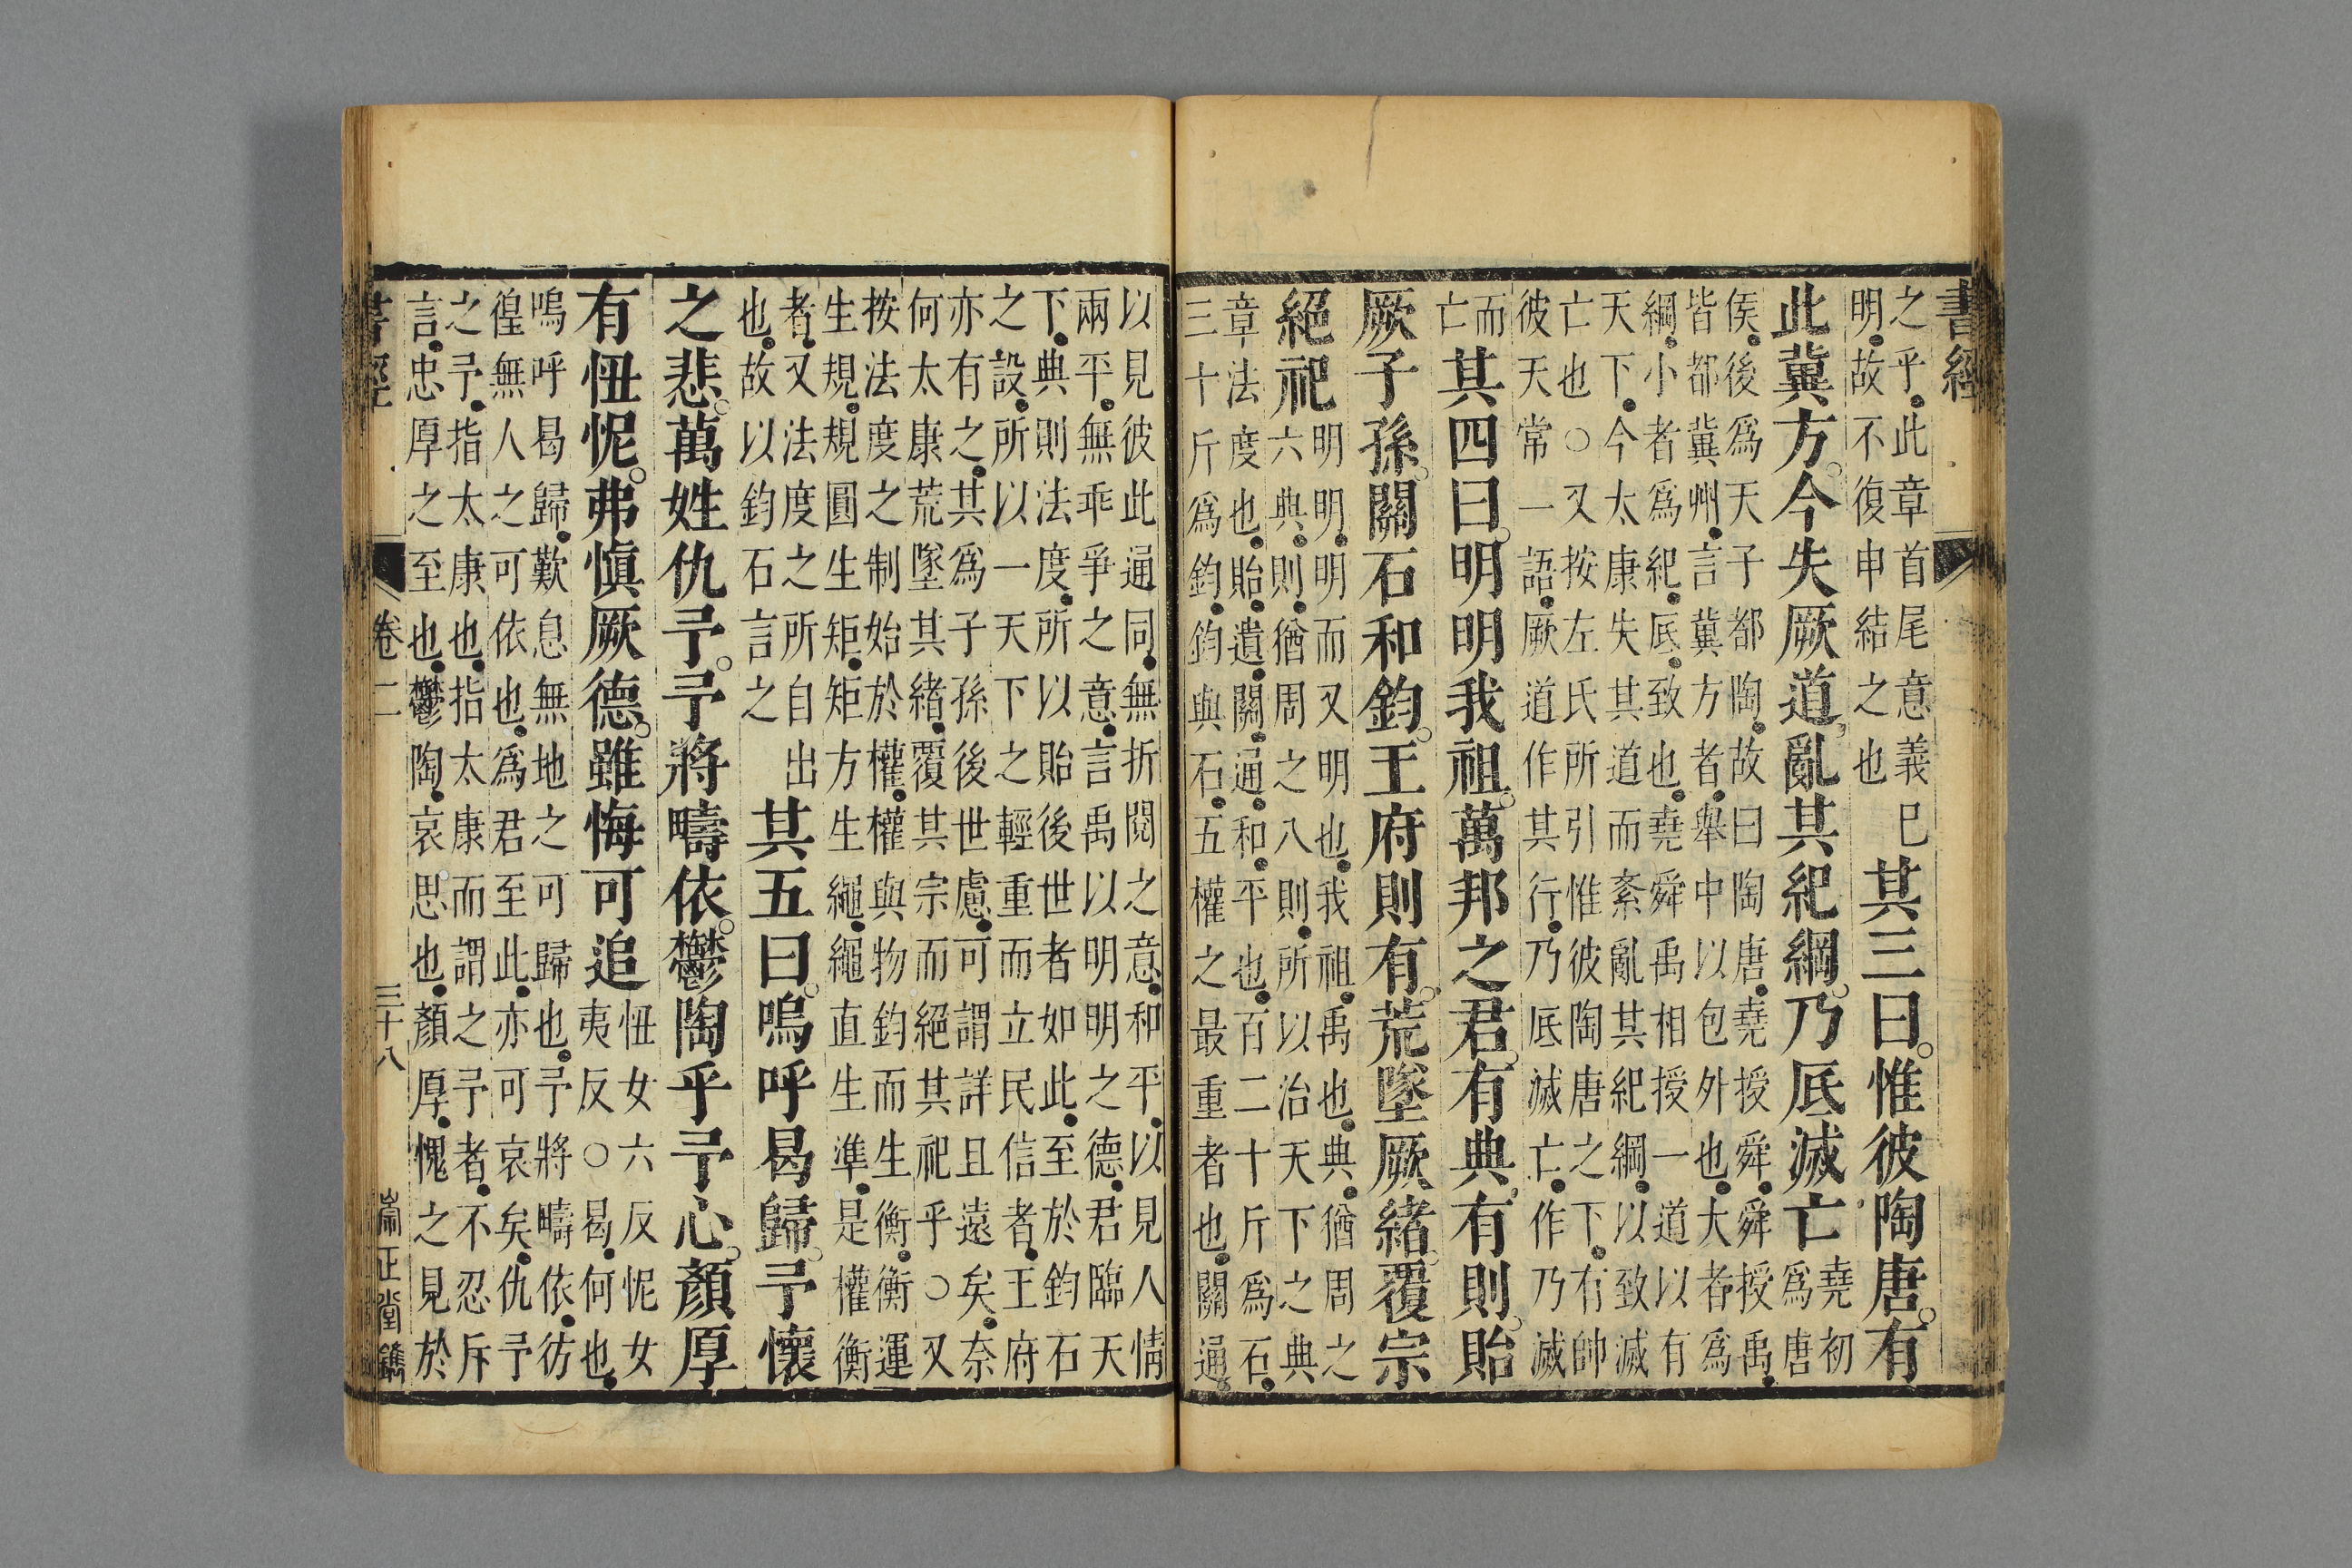 書經
之乎此章首尾意義已
明故不復申結之也
其三曰惟彼陶唐有
此冀方今失厥道亂其紀綱乃底滅亡
堯初
爲唐
侯後爲天子都陶故曰陶唐堯授舜舜授禹
皆都冀州言冀方者舉中以包外也大者爲
綱小者爲紀底致也堯舜禹相授一道以有
天下今太康失其道而紊亂其紀綱以致滅
亡也○又按左氏所引惟彼陶唐之下有帥
彼天常一語厥道作其行乃底滅亡作乃滅
而
亡
其四曰明明我祖萬邦之君有典有則貽
厥子孫關石和鈞王府則有荒墜厥緒覆宗
絕祀
明明明而又明也我祖禹也典猶周之
六典則猶周之八則所以治天下之典
章法度也貽遺關通和平也百二十斤爲石
三十斤爲鈞鈞與石五權之最重者也關通
以見彼此通同無折閱之意和平以見人情
兩平無乖爭之意言禹以明明之德君臨天
下典則法度所以貽後世者如此至於鈞石
之設所以一天下之輕重而立民信者王府
亦有之其爲子孫後世慮可謂詳且遠矣奈
何太康荒墜其緒覆其宗而絕其祀乎○又
按法度之制始於權權與物鈞而生衡衡運
生規規圓生矩矩方生繩繩直生準是權衡
者又法度之所自出
也故以鈞石言之
其五曰嗚呼曷歸予懷
之悲萬姓仇予予將疇依鬱陶乎予心顏厚
有忸怩弗愼厥德雖悔可追
忸女六反怩女
夷反○曷何也
嗚呼曷歸歎息無地之可歸也予將疇依彷
徨無人之可依也爲君至此亦可哀矣仇予
之予指太康也指太康而謂之予者不忍斥
言忠厚之至也鬱陶哀思也顏厚愧之見於
書經 卷二 三十八 崇正堂鐫